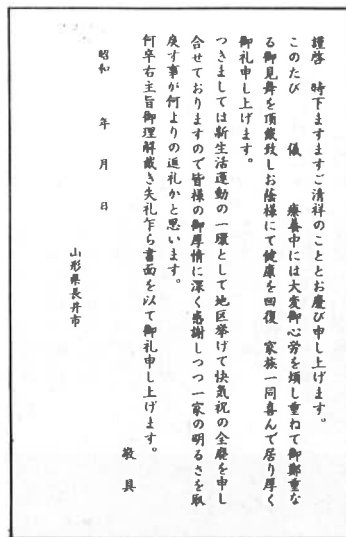 謹啓　時下ますますご清祥のこととお慶び申し上げます。
このたび　　　儀　　療養中には大変御心労を煩し重ねて御鄭重な
る御見舞を頂戴致しお陰様にて健康を回復　家族一同喜んで居り厚く
御礼申し上げます。
つきましては新生活運動の一環として地区挙げて快気祝の全廃を申し
合せておりますので皆様の御厚情に深く感謝しつつ一家の明るさを取
戻す事が何よりの返礼かと思います。
何卒右主旨御理解戴き失礼乍ら書面を以て御礼申し上げます。
敬具
昭和　　年　　月　　日
山形県長井市